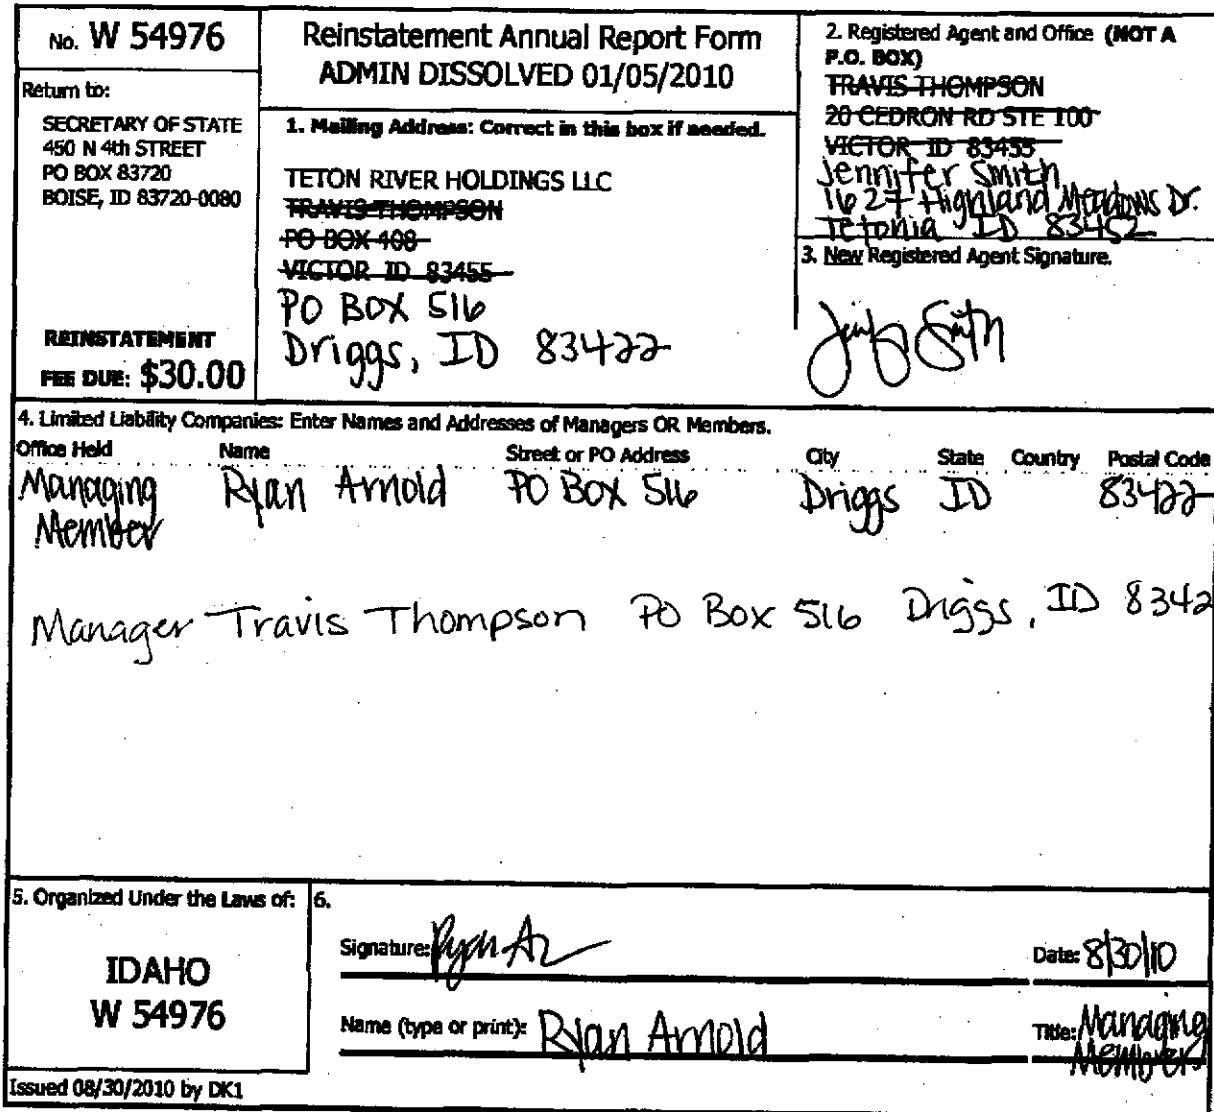 No. W 54976
Return to:
SECRETARY OF STATE
450 N 4th STREET
PO BOX 83720
BOISE, ID 83720-0080
REINSTATEMENT
FEE DUE: $30.00
Reinstatement Annual Report Form
ADMIN DISSOLVED 01/05/2010
1. Mailing Address: Correct in this box if needed.
TETON RIVER HOLDINGS LLC
TRAVIS THOMPSON
PO BOX 408
VICTOR ID 83455
PO BOX 516
Driggs, ID 83422
2. Registered Agent and Office (NOT A
P.O. BOX)
TRAVIS THOMPSON
20 CEDRON RD STE 100
VICTOR ID 83455
Jennifer Smith
1627 Highland Meadows Dr.
Tetonia ID 83452
3. New Registered Agent Signature.
4. Limited Liability Companies: Enter Names and Addresses of Managers OR Members.
Office Held Name Street or PO Address City State Country Postal Code
Managing Ryan Arnold PO BOX 516 Driggs ID 83422
Member
Manager Travis Thompson PO Box 516 Driggs, ID 8342
5. Organized Under the Laws of:
IDAHO
W 54976
6.
Signature: Ryan
Date: 8/30/10
Name (type or print): Ryan Arnold
Title: Managing
Member
Issued 08/30/2010 by DK1